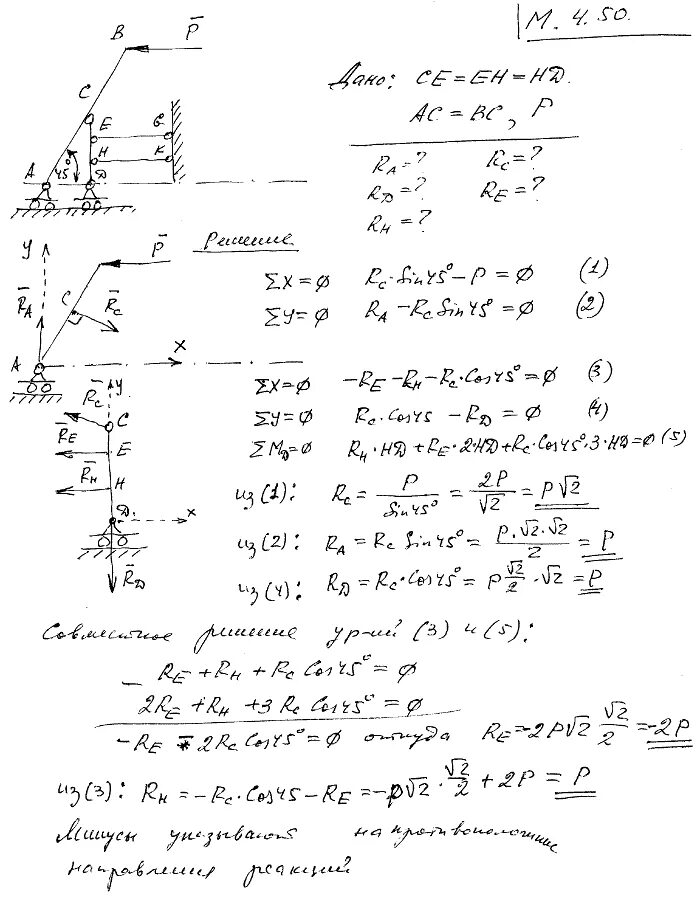 М. 4.50.
B P̄
Дано: CE = EH = HD.
AC = BC, P
C
E G
H K
A 45° D
R_A = ? R_C = ?
R_D = ? R_E = ?
R_H = ?
Решение
y P̄
ΣX = ∅ R_C · Sin45° – P = ∅ (1)
R̄_A C R̄_C
ΣY = ∅ R_A – R_C Sin45° = ∅ (2)
A x
ΣX = ∅ –R_E – R_H – R_C · Cos45° = ∅ (3)
R̄_C y
C
ΣY = ∅ R_C · Cos45 – R_D = ∅ (4)
R̄_E E
ΣM_D = ∅ R_H · HD + R_E · 2HD + R_C · Cos45° · 3 · HD = ∅ (5)
R̄_H H
из(1): R_C = P / Sin45° = 2P / √2 = P√2
D x
из(2): R_A = R_C Sin45° = P·√2·√2 / 2 = P
R̄_D
из(4): R_D = R_C · Cos45° = P √2/2 · √2 = P
Совместное решение ур-ий (3) и (5):
– R_E + R_H + R_C Cos45° = ∅
2R_E + R_H + 3R_C Cos45° = ∅
–R_E – 2R_C Cos45° = ∅ откуда R_E = –2P√2 √2/2 = –2P
из(3): R_H = –R_C · Cos45 – R_E = –P√2 · √2/2 + 2P = P
Минусы указывают на противоположные
направления реакций